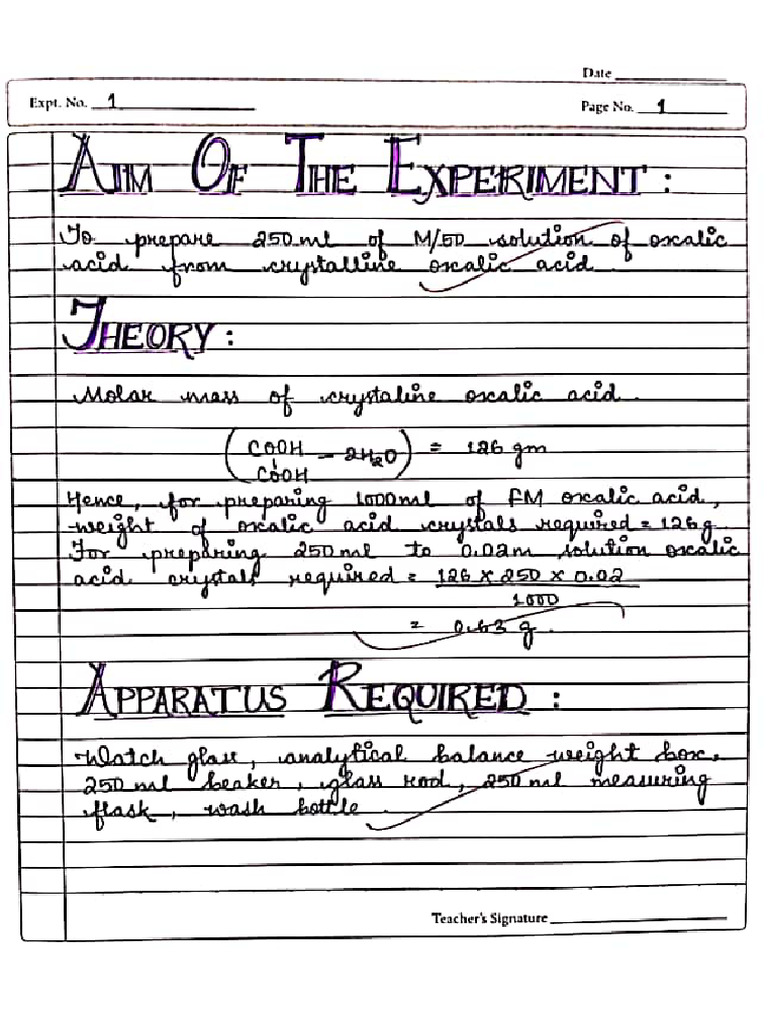 Date
Expt. No. 1
Page No. 1
AIM OF THE EXPERIMENT :
To prepare 250 ml of M/50 solution of oxalic
acid from crystalline oxalic acid.
THEORY :
Molar mass of crystaline oxalic acid.
(COOH – 2H2O) = 126 gm
COOH
Hence, for preparing 1000ml of FM oxalic acid,
weight of oxalic acid crystals required = 126g.
For preparing 250 ml to 0.02m solution oxalic
acid crystals required = 126 x 250 x 0.02
1000
= 0.63 g.
APPARATUS REQUIRED :
Watch glass, analytical balance weight box,
250 ml beaker, glass rod, 250 ml measuring
flask, wash bottle.
Teacher's Signature